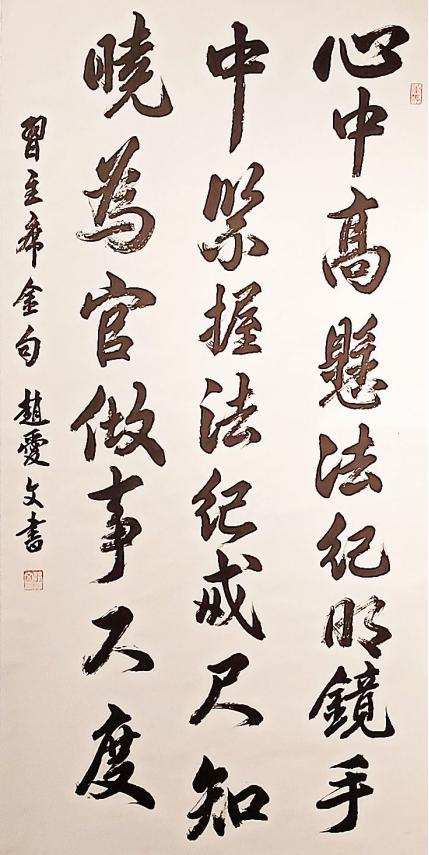 心中高懸法紀明鏡手
中緊握法紀戒尺知
曉為官做事尺度
習主席金句 趙愛文書